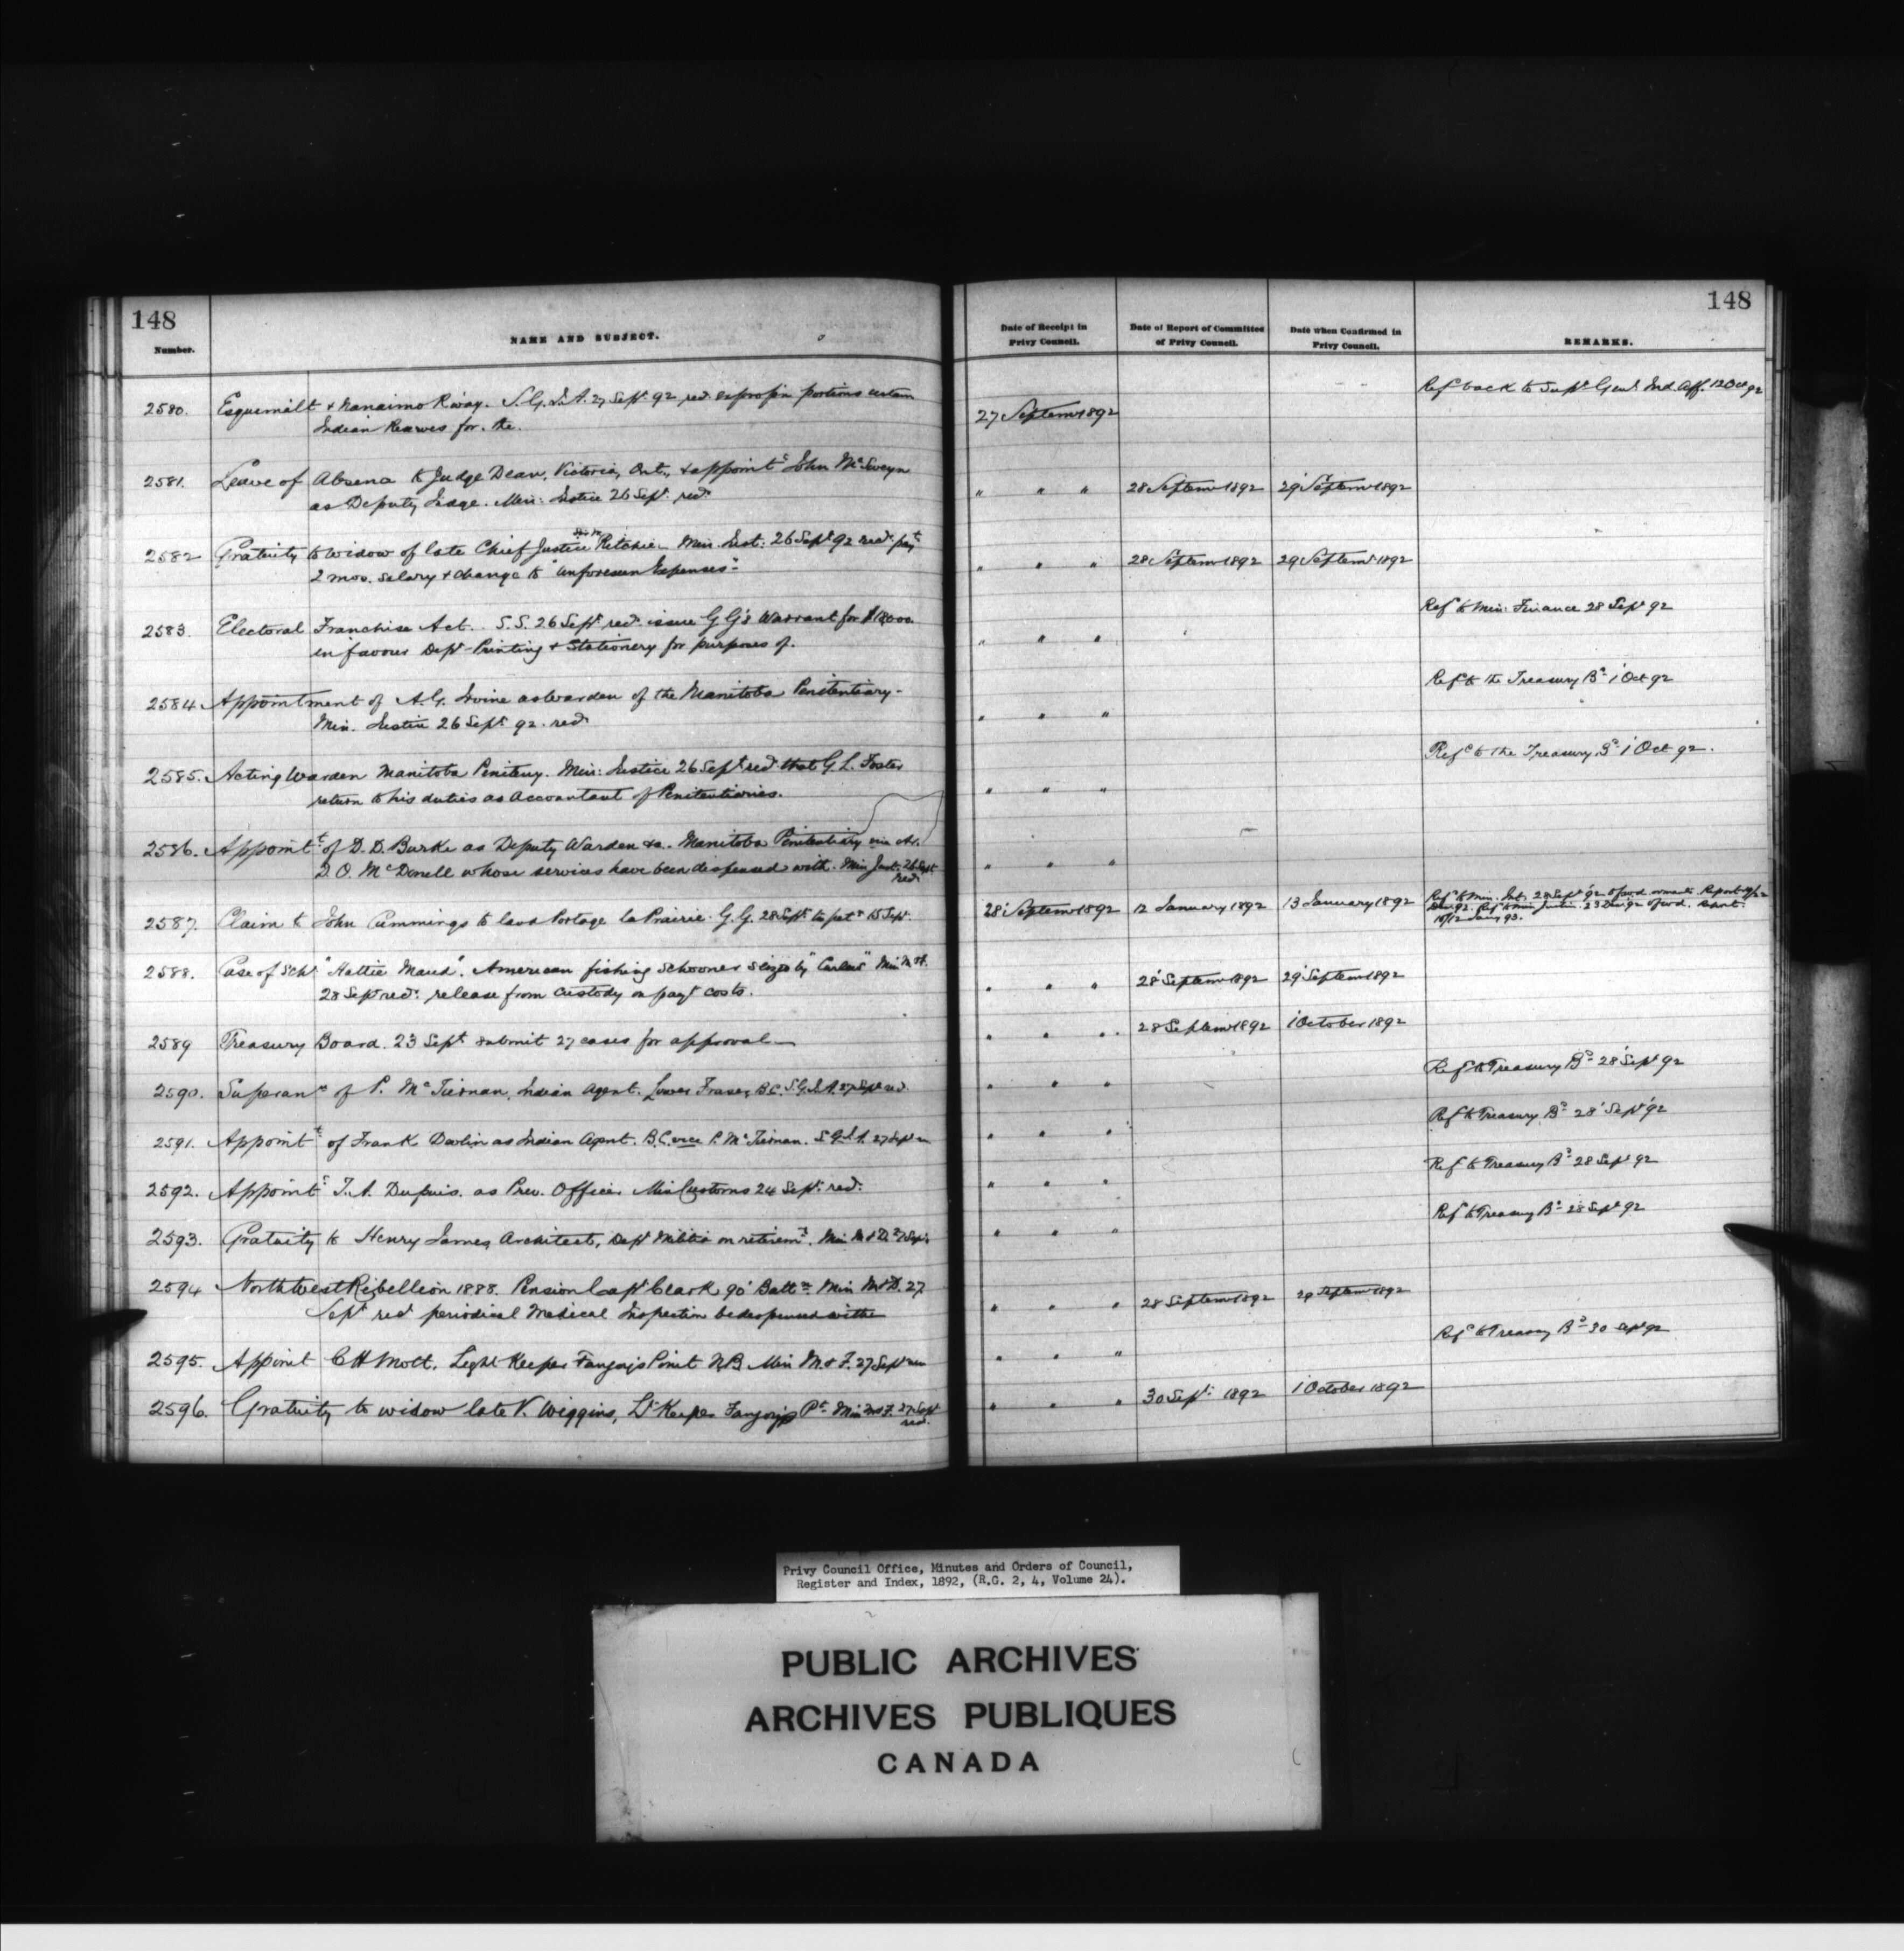 148
Number.
NAME AND SUBJECT.
2580. Esquimalt & Nanaimo R'way. S.G.I.A. 27 Sept 92 recd expropn portions certain
Indian Reserves for. the.
2581. Leave of Absence to Judge Dean, Victoria, Ont., & appointt John McSweyn
as Deputy Judge. Min: Justice 26 Sept. recd
2582 Gratuity to widow of late Chief Justice Ritchie. Min. Just: 26 Sept 92 recd payt
2 mos. salary & charge to "Unforeseen Expenses".
2583. Electoral Franchise Act. S.S. 26 Sept recd issue G G's Warrant for
in favour Dept Printing & Stationery for purposes of.
2584 Appointment of A.G. Irvine as Warden of the Manitoba Penitentiary.
Min. Justice 26 Sept 92. recd
2585. Acting Warden Manitoba Peniteny. Min: Justice 26 Sept recd that G.L. Foster
return to his duties as Accountant of Penitentiaries.
2586. Appointt of D.D. Burke as Deputy Warden &c. Manitoba Penitentiary vice
D.O. McDonell whose services have been dispensed with. Min Just. 26 Sept
recd
2587. Claim to John Cummings to land Portage la Prairie. G.G. 28 Sept 15 Sept.
2588. Case of Schr "Hattie Maud". American fishing Schooner seized by "Curlew" Min M & F.
28 Sept recd release from custody on payt costs.
2589 Treasury Board. 23 Sept submit 27 cases for approval
2590. Superann of P. McTiernan, Indian Agent. Lower Fraser, B.C. S.G.I.A. 27 Sept recd.
2591. Appointt of Frank Devlin as Indian Agent. B.C. vice P. McTiernan. S.G.I.A. 27 Sept
2592. Appointt J.A. Dupuis. as Prev. Officer Min Customs 24 Sept. recd.
2593. Gratuity to Henry James, Architect, Dept Militia on retiremt. Min M & D. 27 Sept
2594 North West Rebellion 1888. Pension Capt Clark 90' Battn Min M & D. 27
Sept recd periodical Medical Inspection be dispensed with
2595. Appoint C H Mott. Light Keeper Point N.B. Min M & F. 27 Sept
2596. Gratuity to widow late V. Wiggins, Lt Keeper Pt Min M & F. 27 Sept
recd.
148
Date of Receipt in Privy Council.
Date of Report of Committee of Privy Council.
Date when Confirmed in Privy Council.
REMARKS.
27 Septemr 1892 Refd back to Supt Genl Ind. Aff. 12 Oct 92
" " " 28 Septemr 1892 29 Septemr 1892
" " " 28 Septemr 1892 29 Septemr 1892
" " " Refd to Min: Finance 28 Sept 92
" " " Refd to the Treasury Bd 1 Oct 92
" " " Refd to the Treasury Bd 1 Oct 92.
" " "
28 Septemr 1892 12 January 1892 13 January 1892 Refd to Min. Int. 28 Sept 92
Refd to Min Justice. 23 Dec 92
" " " 28 Septemr 1892 29 Septemr 1892
" " " 28 Septemr 1892 1 October 1892
" " " Refd to Treasury Bd 28 Sept 92
" " " Refd to Treasury Bd 28 Sept 92
" " " Refd to Treasury Bd 28 Sept 92
" " " Refd to Treasury Bd 28 Sept 92
" " " 28 Septemr 1892 29 Septemr 1892
" " " Refd to Treasury Bd 30 Sept 92
" " " 30 Sept: 1892 1 October 1892
Privy Council Office, Minutes and Orders of Council,
Register and Index, 1892, (R.G. 2, 4, Volume 24).
PUBLIC ARCHIVES
ARCHIVES PUBLIQUES
CANADA